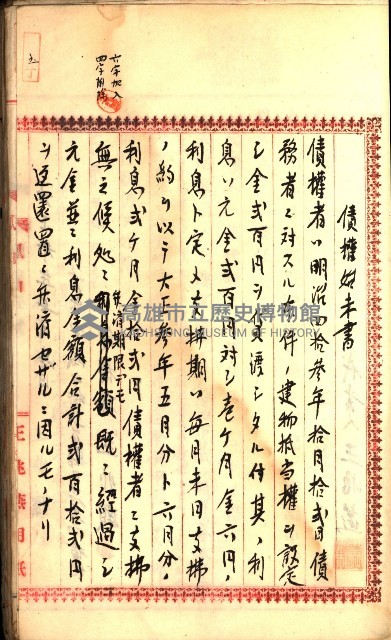 債權始末書
債權者ハ明治四拾參年拾月拾貳日債
務者ニ對スル右件ノ建物抵当權ヲ設定
シ金貳百円ヲ貸渡シタル付其ノ利
息ハ元金貳百円対シ壱ヶ月金六円ノ
利息ト定メ支拂期ハ毎月末日支拂
ノ約ヲ以テ大正參年五月分ト六月分ノ
利息貳ヶ月金拾貳円債權者ニ支拂
無之候処
弁済期限デモ
既ニ經過シ
元金並ニ利息金額合計貳百拾貳円
ヲ返還置ニ弁済セザルニ因ルモノナリ
六字加入
四字削除
高雄市立歷史博物館